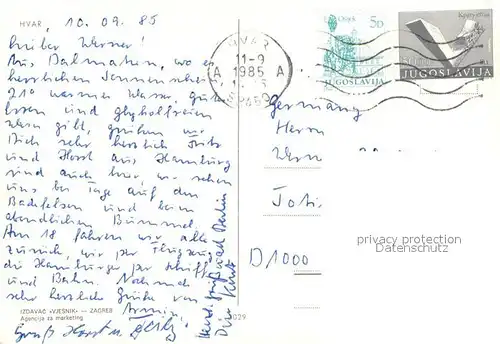 HVAR, 10.09.85
Lieber Werner!
Aus Dalmatien, wo es
herrlichen Sonnenschein,
21° warmes Wasser, gutes
Essen und
Wein gibt, grüßen wir
Dich sehr herzlich
und Horst aus Hamburg
sind auch hier, wir sehen
uns bei Tage auf den
Badefelsen und beim
abendlichen Bummel.
Am 18 fahren wir alle
zurück, wir per Flugzeug
die Hamburger per Schiff
und Bahn. Nochmals
sehr herzliche Grüße von
Armin,
Gruß Horst u.
Berlin
Dein
IZDAVAČ »VJESNIK« — ZAGREB
Agencija za marketing
029
HVAR
11-9
A 1985 A
58450
50
JUGOSLAVIJA
JUGOSLAVIJA
Germany
Herrn
Wern
D 1000
privacy protection
Datenschutz